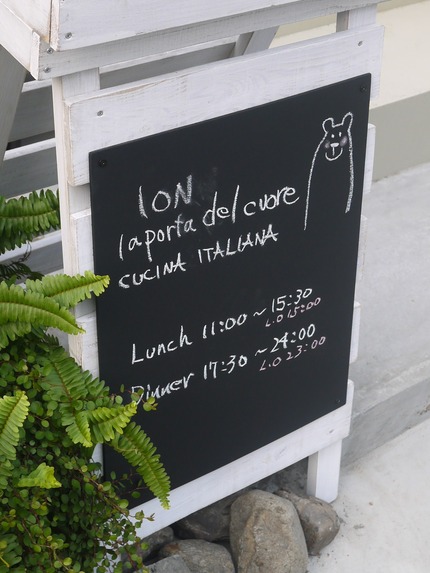 ION
la porta del cuore
CUCINA ITALIANA
Lunch 11:00 ~ 15:30
L.O 15:00
Dinner 17:30 ~ 24:00
L.O 23:00